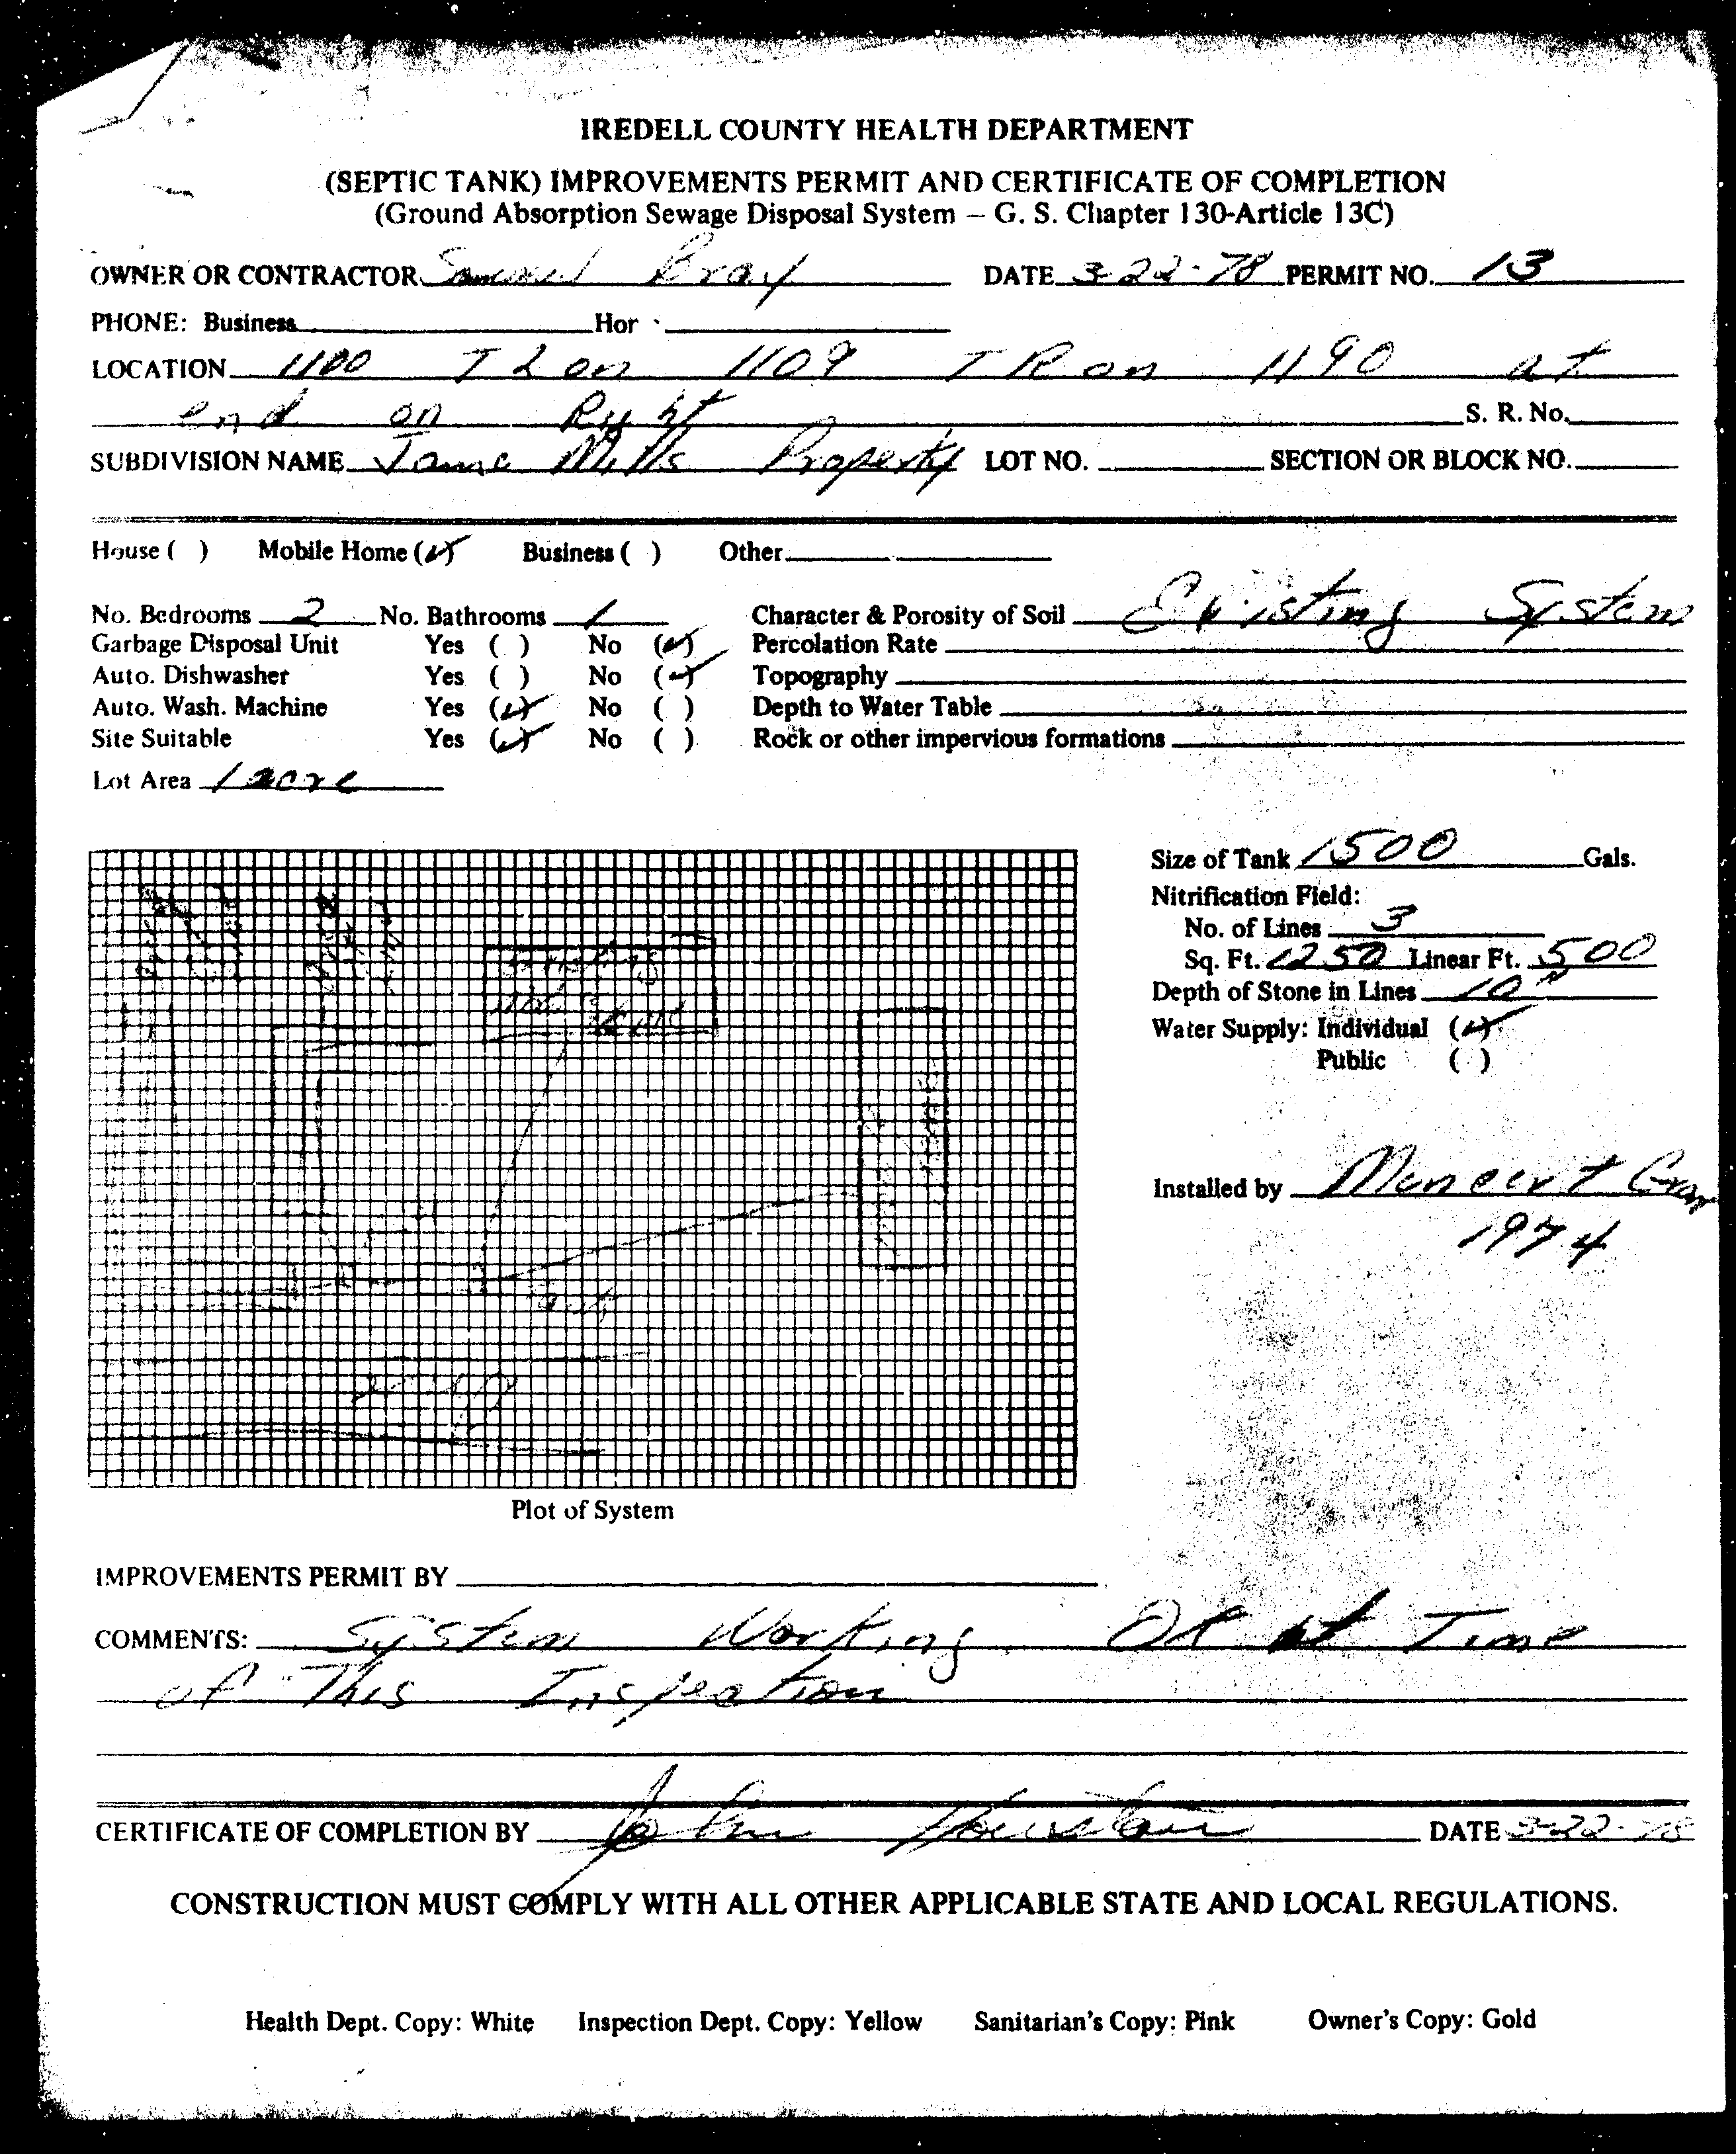 IREDELL COUNTY HEALTH DEPARTMENT
(SEPTIC TANK) IMPROVEMENTS PERMIT AND CERTIFICATE OF COMPLETION
(Ground Absorption Sewage Disposal System – G. S. Chapter 130-Article 13C)
OWNER OR CONTRACTOR Samuel Bray DATE 3-22-78 PERMIT NO. 13
PHONE: Business Hor
LOCATION 1100 TL on 1109 TR on 1190 at
end on Right S. R. No.
SUBDIVISION NAME Mills Property LOT NO. SECTION OR BLOCK NO.
House ( ) Mobile Home (✓) Business ( ) Other
No. Bedrooms 2 No. Bathrooms 1 Character & Porosity of Soil Existing System
Garbage Disposal Unit Yes ( ) No (✓) Percolation Rate
Auto. Dishwasher Yes ( ) No (✓) Topography
Auto. Wash. Machine Yes (✓) No ( ) Depth to Water Table
Site Suitable Yes (✓) No ( ) Rock or other impervious formations
Lot Area 1 acre
Size of Tank 1500 Gals.
Nitrification Field:
No. of Lines 3
Sq. Ft. 1250 Linear Ft. 500
Depth of Stone in Lines 10"
Water Supply: Individual (✓)
Public ( )
Installed by
1974
Existing
Plot of System
IMPROVEMENTS PERMIT BY
COMMENTS: System Working OK at Time
of This Inspection
CERTIFICATE OF COMPLETION BY John Houston DATE 3-22-78
CONSTRUCTION MUST COMPLY WITH ALL OTHER APPLICABLE STATE AND LOCAL REGULATIONS.
Health Dept. Copy: White Inspection Dept. Copy: Yellow Sanitarian's Copy: Pink Owner's Copy: Gold